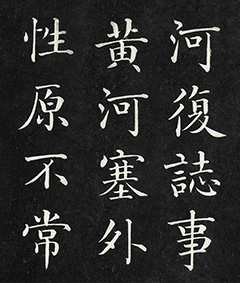 河復誌事
黃河塞外
性原不常